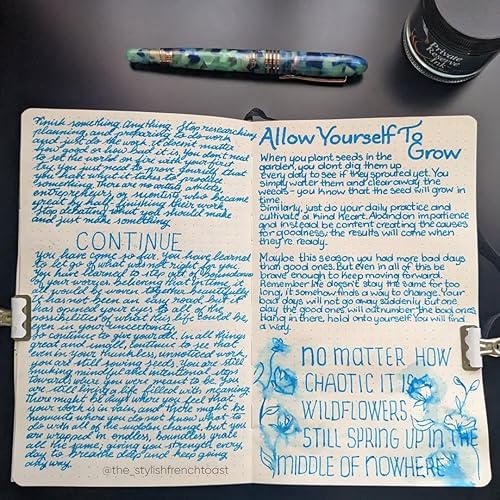 Private
Reserve
Ink
Finish something. Anything. Stop researching,
planning, and preparing to do work
and just do the work. It doesn't matter
how good or how bad it is. You don't need
to set the world on fire with your first
try. You just need to prove yourself that
you have what it takes to produce
something. There are no artists, athletes,
entrepreneurs, or scientists who became
great by half-finishing their work.
Stop debating what you should make
and just make something.
CONTINUE
You have come so far. You have learned
to let go of what was not right for you.
You have learned to still get up in abundance
of your worries, believing that in time, it
all would be woven together beautifully.
It has not been an easy road, but it
has opened your eyes to all of the
possibilities of what this life could be
even in your uncertainty.
So continue to give yourself, in all things
great and small, continue to see that
even in your thankless, unnoticed work,
you are still sowing seeds. You are still
making mindful and intentional steps
towards who you were meant to be. You
are still living a life filled with meaning.
There might be days where you feel that
your work is in vain, and there might be
moments where you do not know what to
do with all of the sudden change, but you
are wrapped in endless, boundless grace
all the same, giving you strength every
day to breathe deep and keep going
anyway.
@the_stylishfrenchtoast
Allow Yourself To
Grow
When you plant seeds in the
garden, you dont dig them up
every day to see if they sprouted yet. You
simply water them and clear away the
weeds - you know that the seed will grow in
time.
Similarly, just do your daily practice and
cultivate a kind heart. Abandon impatience
and instead be content creating the causes
for goodness; the results will come when
they're ready.
Maybe this season you had more bad days
than good ones. But even in all of this be
brave enough to keep moving forward.
Remember life doesn't stay the same for too
long, it somehow finds a way to change. Your
bad days will not go away suddenly but one
day the good ones will outnumber the bad ones.
Hang in there, hold onto yourself. You will find
a way.
no matter how
chaotic it is,
wildflowers
still spring up in the
middle of nowhere